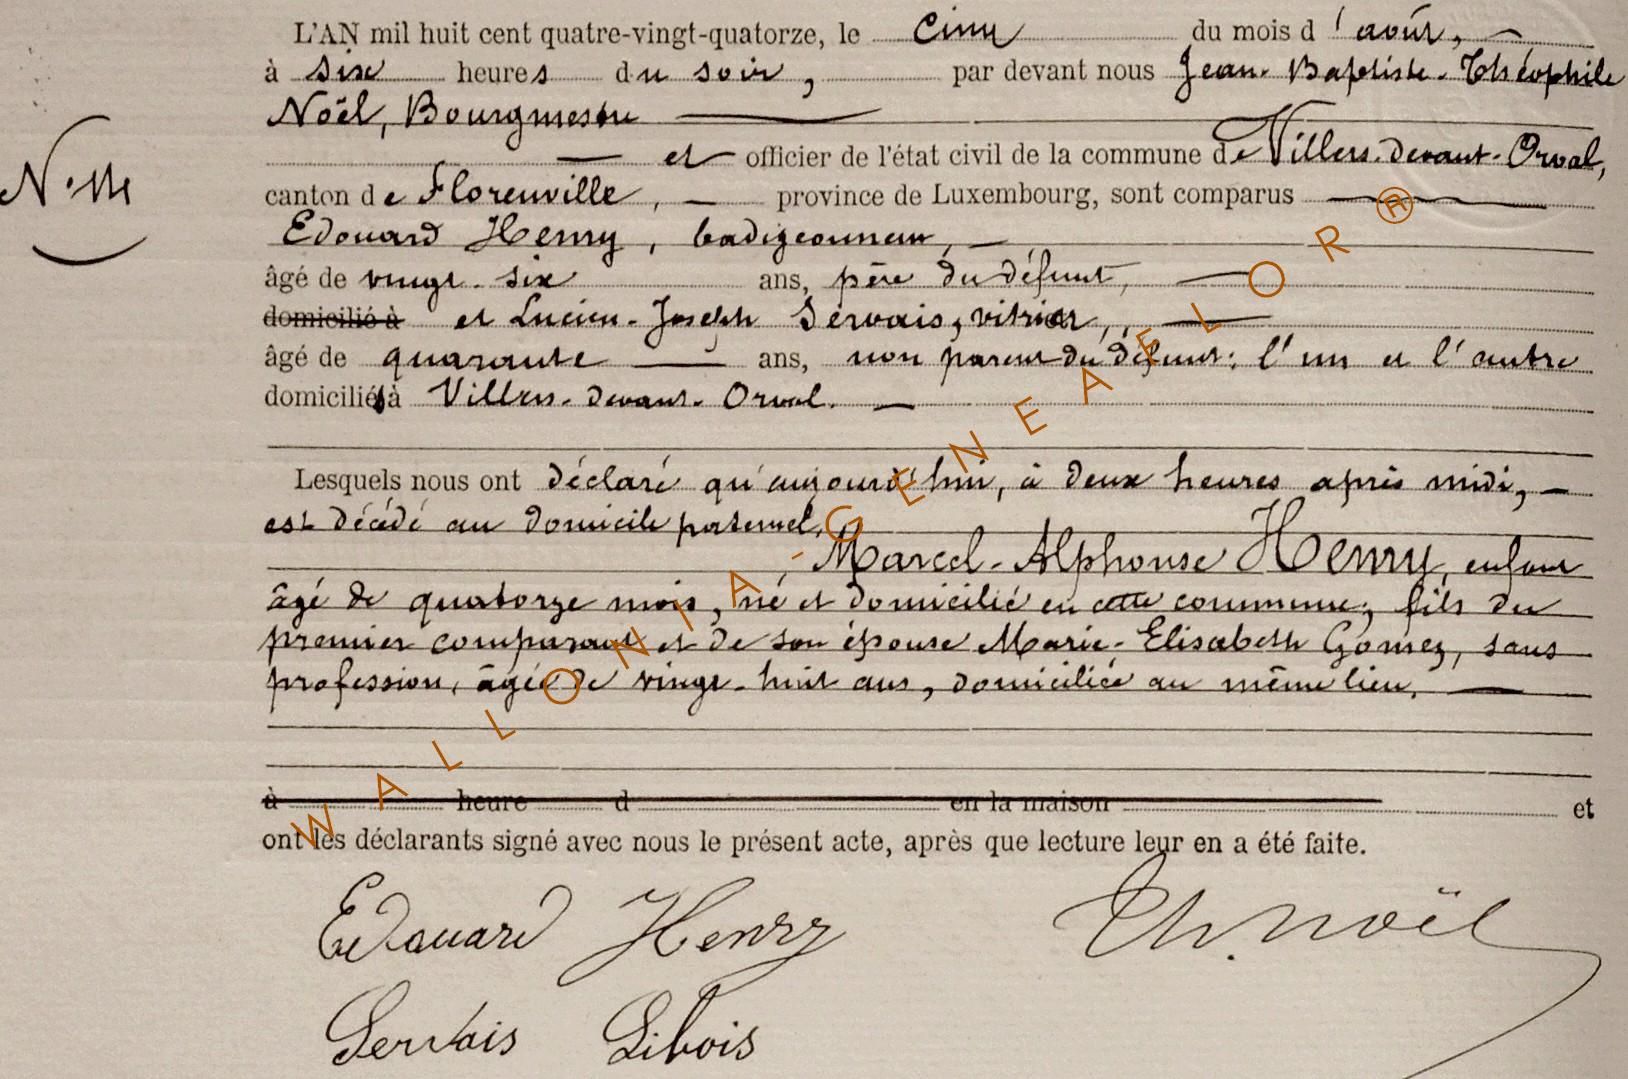 L'AN mil huit cent quatre-vingt-quatorze, le cinq du mois d'août,
à six heures du soir, par devant nous Jean-Baptiste-Théophile
Noël, Bourgmestre
et officier de l'état civil de la commune de Villers-devant-Orval,
N.
canton de Florenville, province de Luxembourg, sont comparus
Edouard Henry, badigeonneur,
âgé de vingt-six ans, père du défunt,
domicilié à et Lucien-Joseph Servais, vitrier,
âgé de quarante ans, non parent du défunt; l'un et l'autre
domiciliés à Villers-devant-Orval.
Lesquels nous ont déclaré qu'aujourd'hui, à deux heures après midi,
est décédé au domicile paternel,
Marcel-Alphonse Henry, enfant
âgé de quatorze mois, né et domicilié en cette commune, fils du
premier comparant et de son épouse Marie-Elisabeth Gomez, sans
profession, âgée de vingt-huit ans, domiciliée au même lieu.
à heure d en la maison et
ont les déclarants signé avec nous le présent acte, après que lecture leur en a été faite.
Edouard Henry Th. Noël
Servais Libois
WALLONIA-GENEAFLOR®